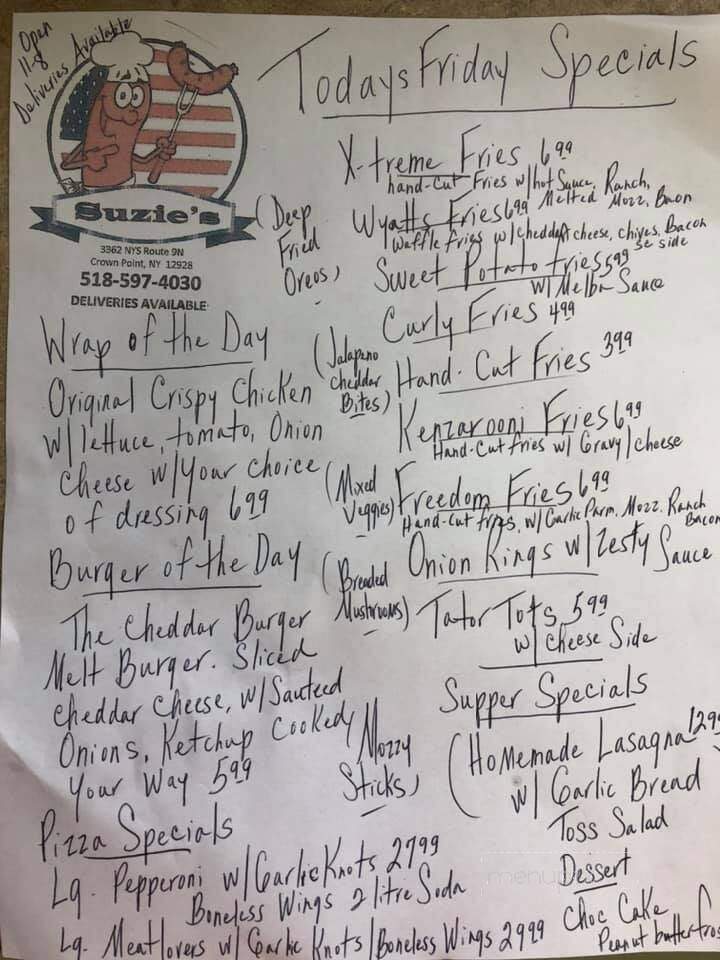 Open
11-8
Deliveries Available
Suzie's
3362 NYS Route 9N
Crown Point, NY 12928
518-597-4030
DELIVERIES AVAILABLE
Todays Friday Specials
X-treme Fries 6.99
hand-cut Fries w/hot Sauce, Ranch,
Melted Mozz, Bacon
Wyatts Fries 6.99
Waffle fries w/cheddar cheese, chives, Bacon
se side
Sweet Potato fries 5.99
w/ Melba Sauce
Curly Fries 4.99
Hand-Cut Fries 3.99
Kenzarooni Fries 6.99
Hand-Cut fries w/ Gravy/cheese
Freedom Fries 6.99
Hand-cut fries, w/ Garlic Parm, Mozz, Ranch
Bacon
Onion Rings w/Zesty Sauce
Tator Tots 5.99
w/ cheese Side
(Deep
Fried
Oreos)
(Jalapeno
cheddar
Bites)
(Mixed
Veggies)
(Breaded
Mushrooms)
(Mozzy
Sticks)
Wrap of the Day
Original Crispy Chicken
w/lettuce, tomato, Onion
cheese w/your choice
of dressing 6.99
Burger of the Day
The Cheddar Burger
Melt Burger. Sliced
cheddar cheese, w/Sauteed
Onions, Ketchup Cooked
Your Way 5.99
Pizza Specials
Lg. Pepperoni w/Garlic Knots 27.99
Boneless Wings 2 litre Soda
Lg. Meatlovers w/ Garlic Knots/Boneless Wings 29.99
Supper Specials
(Homemade Lasagna 12.99
w/ Garlic Bread
Toss Salad
Dessert
Choc Cake
Peanut butter fros